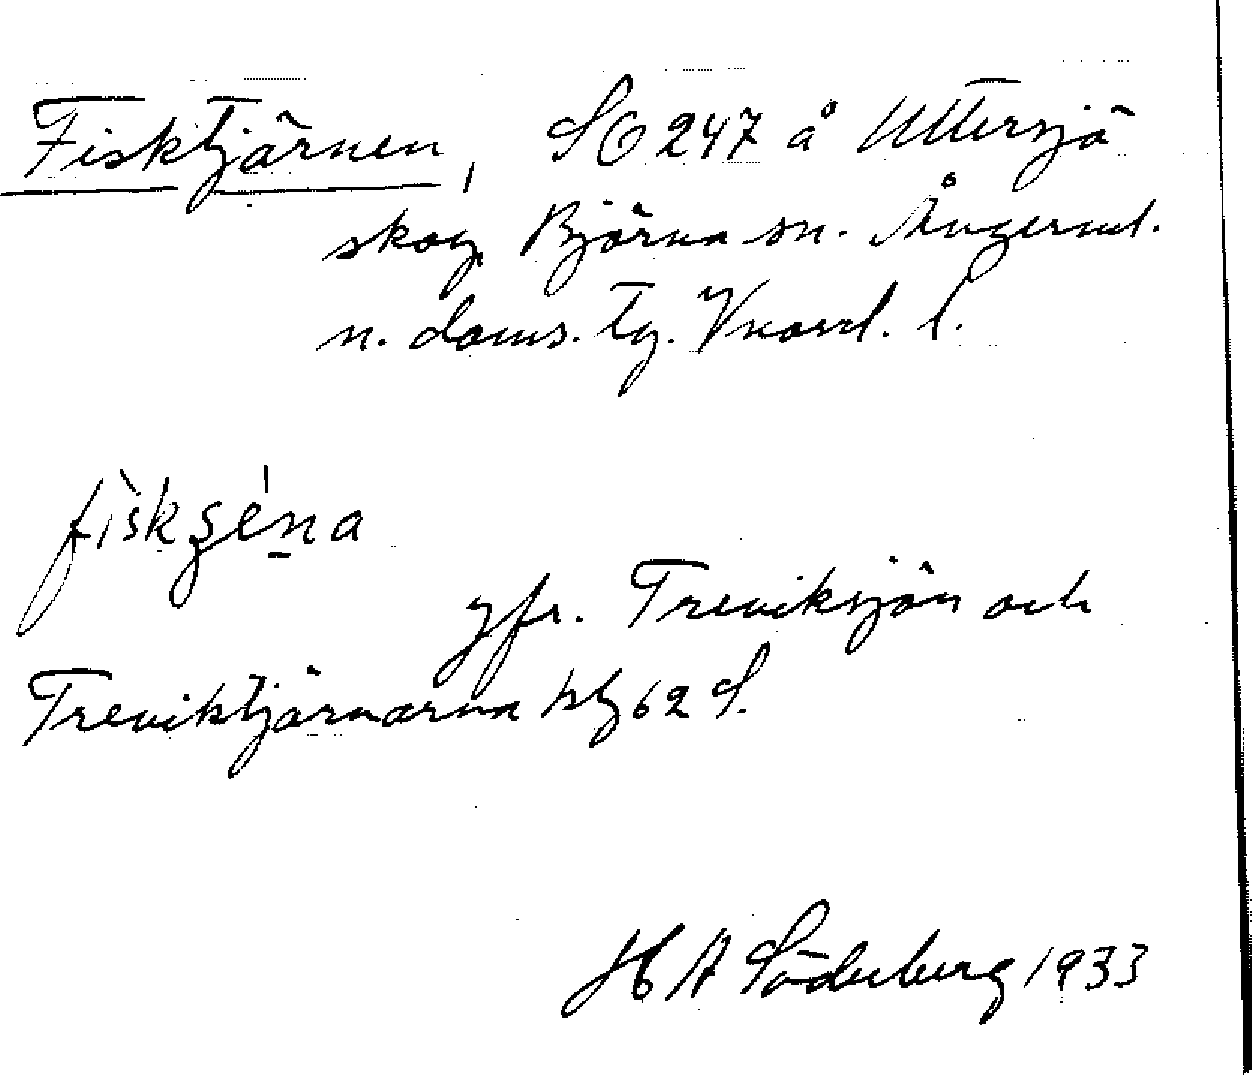 Fisktjärnen, SO 247 å Uttersjö
skog, Björna sn. Ångerml.
n. doms. tg. Vnorrl. l.
fiskʂéna
jfr. Treviksjön och
Treviktjärnarna blg 62 S.
H A Söderberg 1933